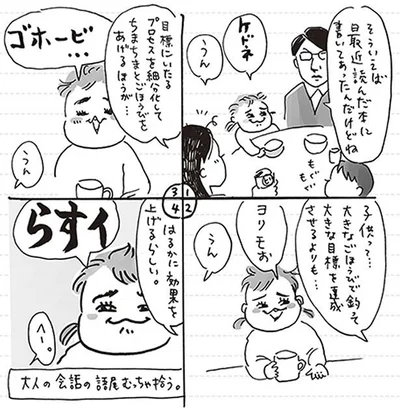 そういえば
最近読んだ本に
書いてあったんだけどね
ケドネ
うん
もぐ
もぐ
3 1
4 2
子供って…
大きなごほうびで釣って
大きな目標を達成
させるよりも…
ヨリモぉ
うん
目標にいたる
プロセスを細分化して
ちまちまとごほうびを
あげるほうが…
ゴホービ
…
うん
はるかに効果を
上げるらしい。
らすイ
へー。
大人の会話の語尾むっちゃ拾う。